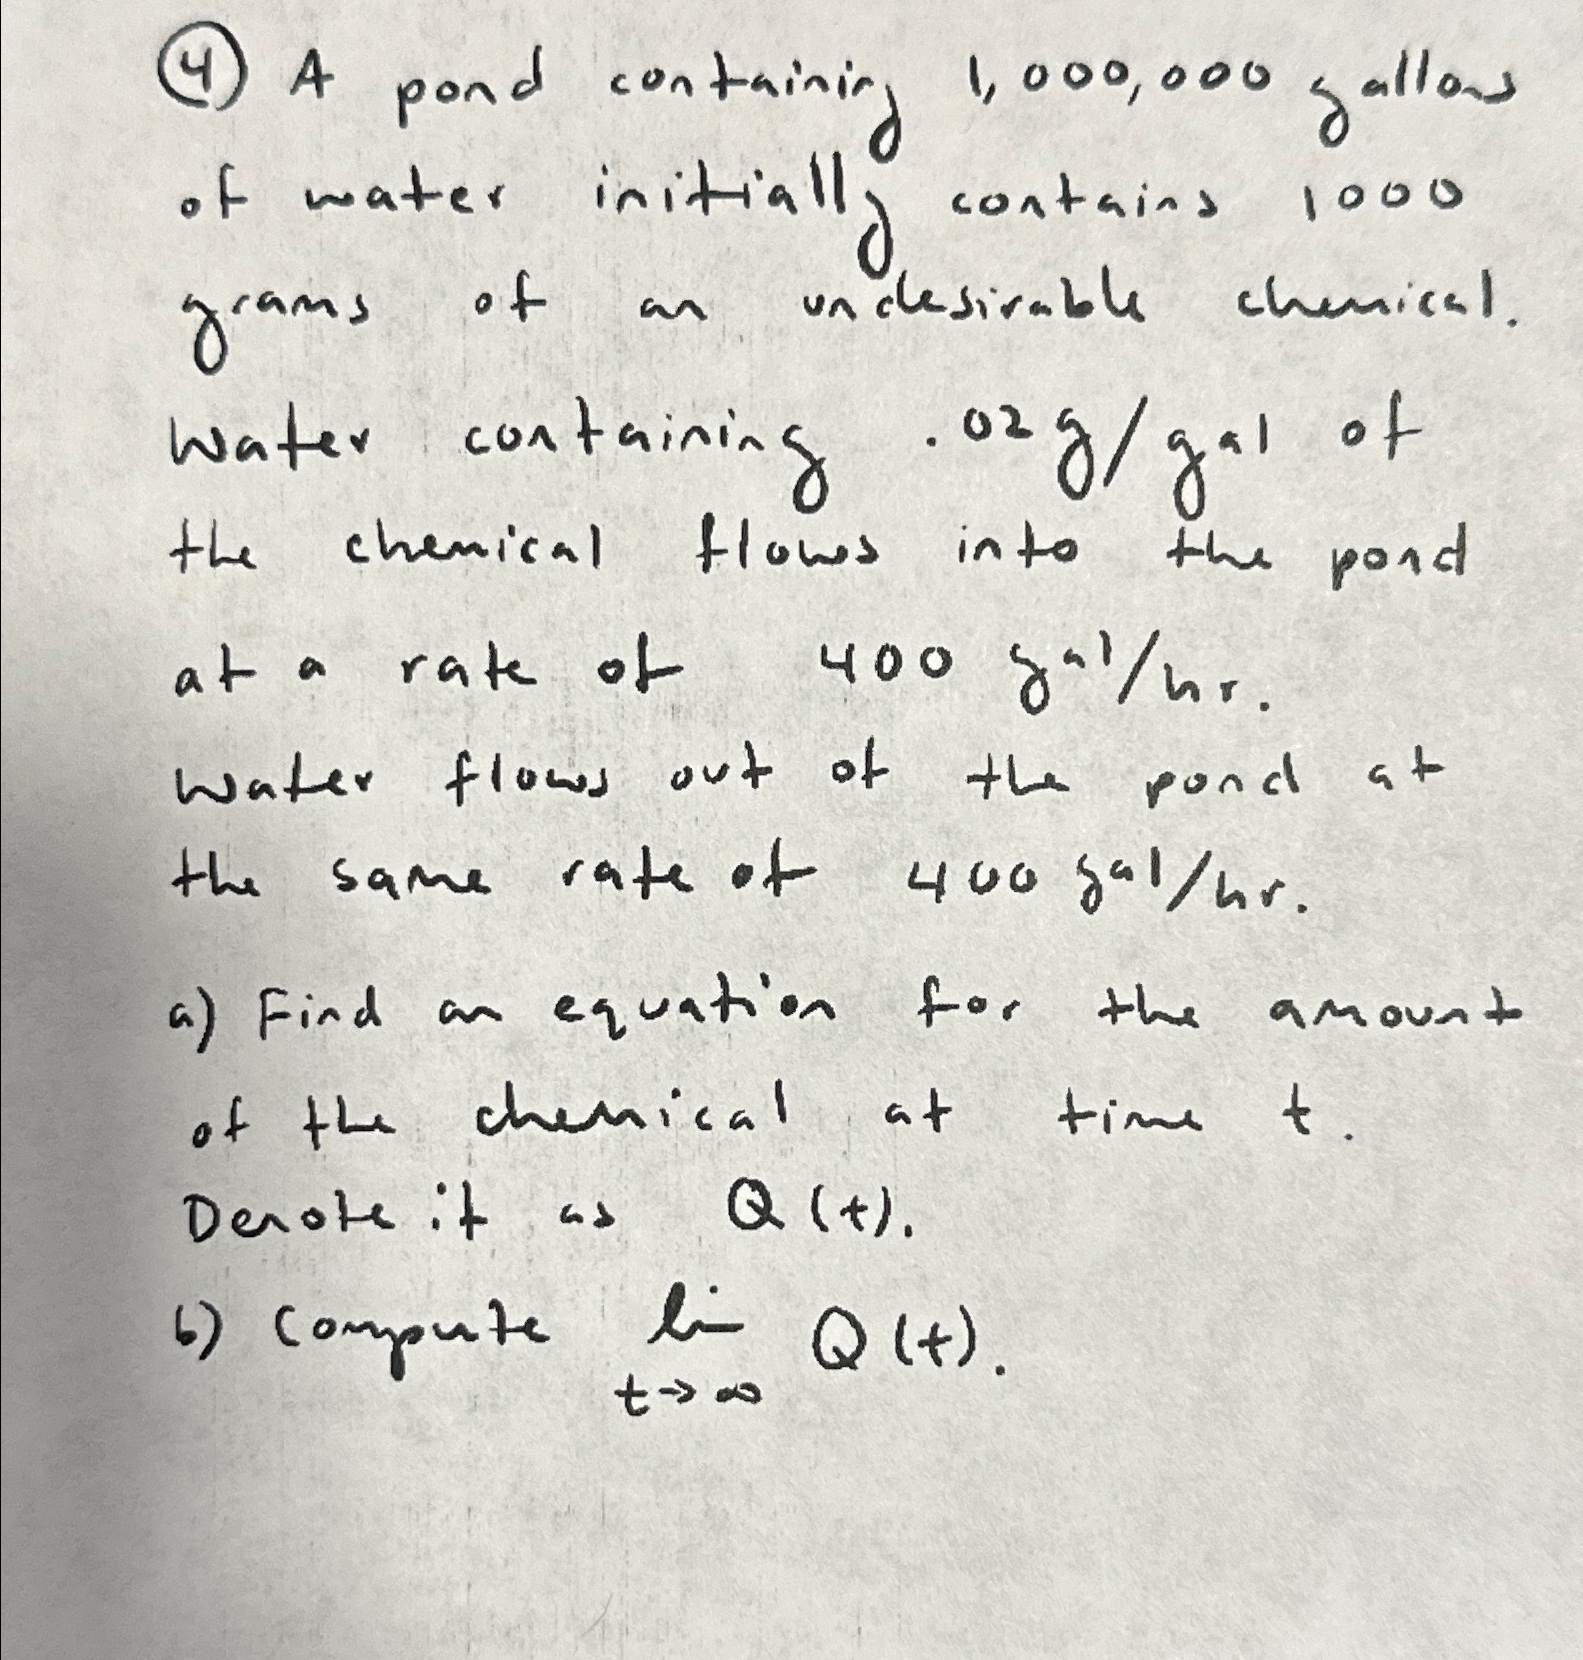 ④ A pond containing 1,000,000 gallons
of water initially contains 1000
grams of an undesirable chemical.
Water containing .02g/gal of
the chemical flows into the pond
at a rate of 400 gal/hr.
Water flows out of the pond at
the same rate of 400 gal/hr.
a) Find an equation for the amount
of the chemical at time t.
Denote it as Q(t).
b) Compute lim Q(t).
t→∞